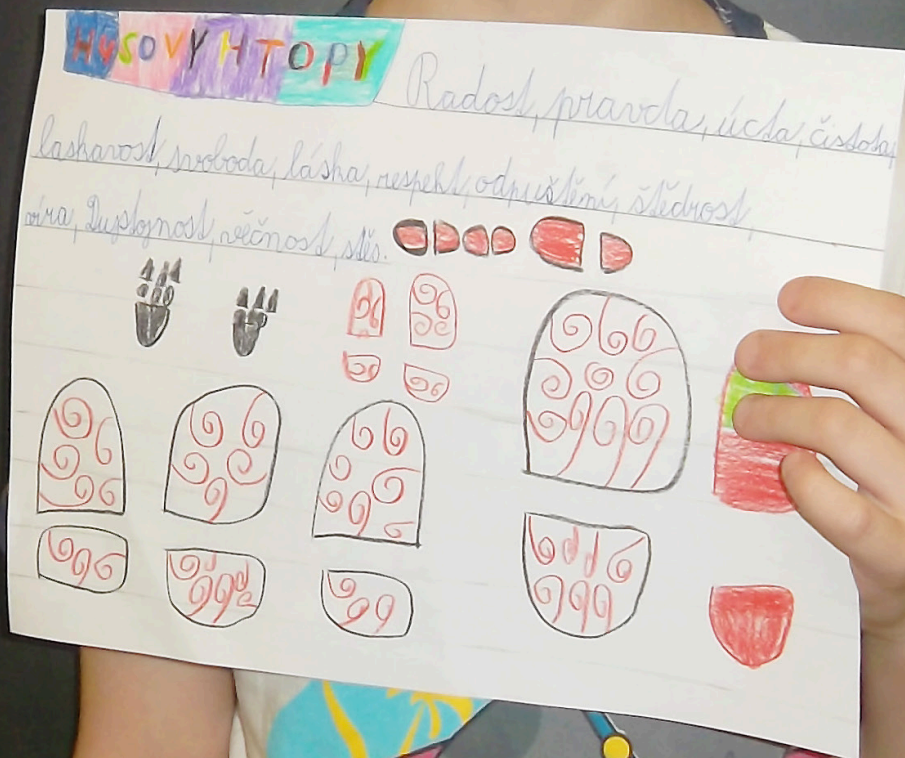 HUSOVY HTOPY
Radost, pravda, úcta, čistota,
laskavost, svoboda, láska, respekt, odpuštění, štědrost,
víra, Dustojnost, věčnost,